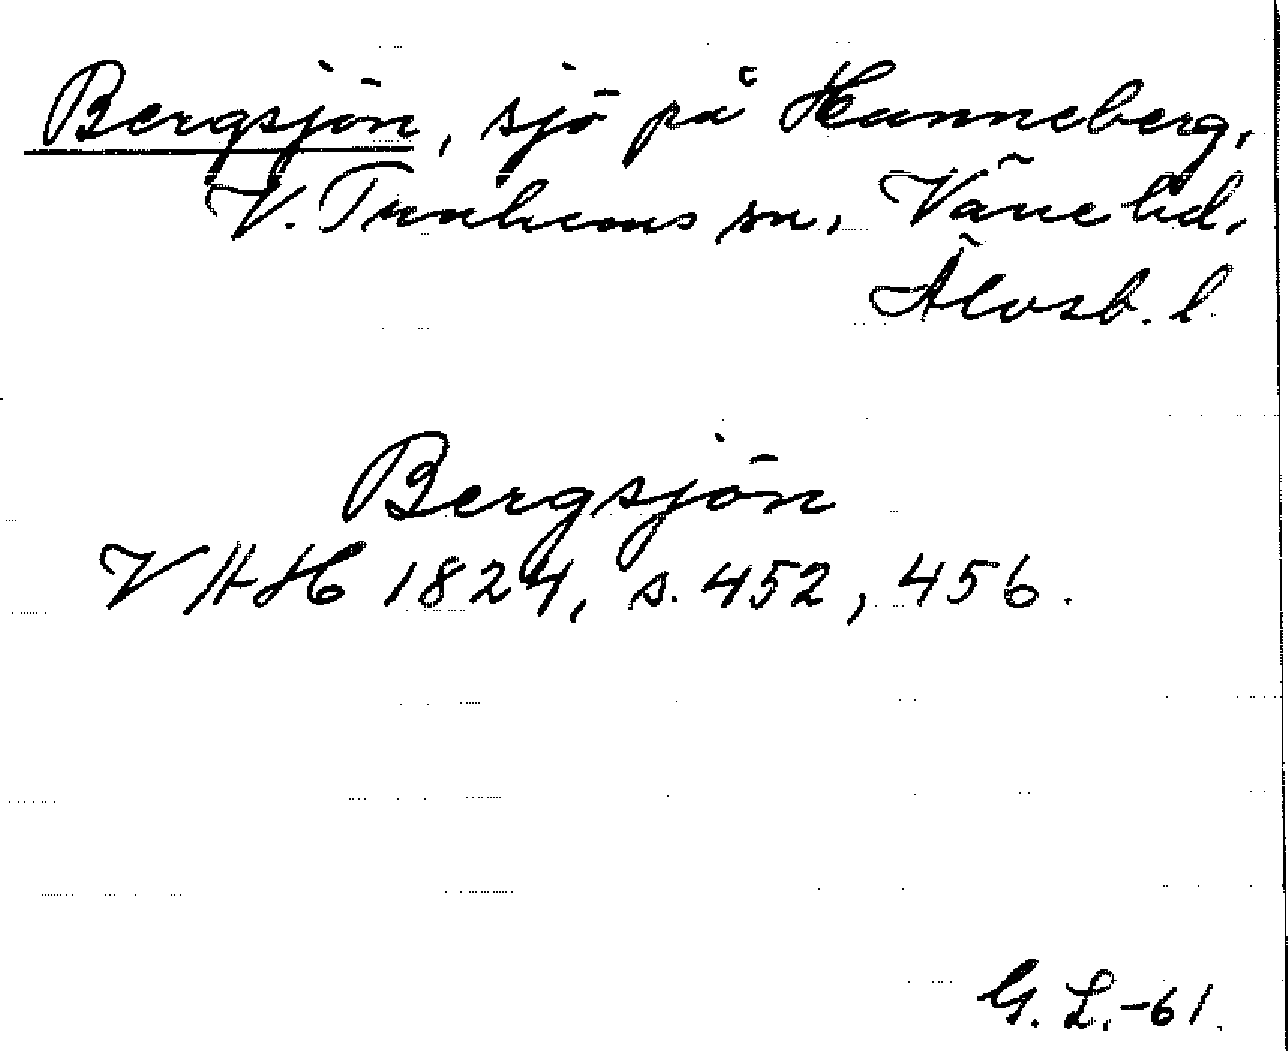 Bergsjön, sjö på Hunneberg,
V. Tunhems sn, Väne hd,
Älvsb. l.
Bergsjön
VHH 1824, s. 452, 456.
G. L. -61.